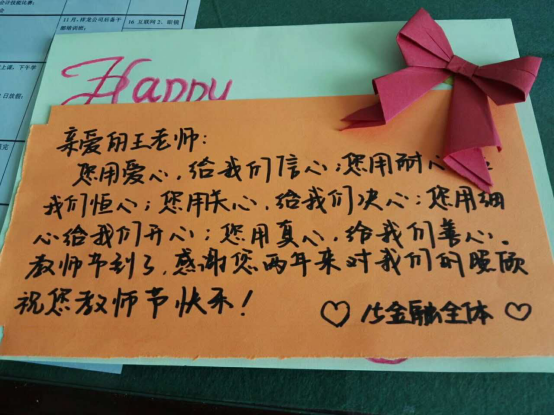 Happy
亲爱的王老师:
您用爱心,给我们信心;您用耐心
我们恒心;您用关心,给我们决心;您用细
心给我们开心;您用真心,给我们善心。
教师节到了,感谢您两年来对我们的照顾
祝您教师节快乐!
♡ 15金融全体 ♡